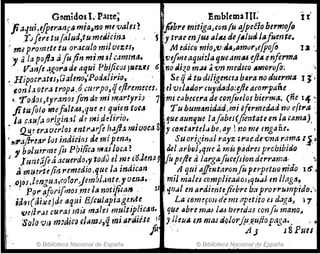 Gomidos I. Parte;
ji aqui, esperança mia, no me vales?
To sere tu salud, tu medicina.
me promete tu oraculo mil vezes,
y à la posta à su fin mi mal camina.
Vanse agora de aqui Publicos juezes
Hipocrates, Galeno, Podalirio,
con la otra tropa, ò cuerpo, q̃ estremecer.
Todos, tyranos son de mi martyrio
si tu solo me faltas, que es quien toca
la causa original de mi delirio.
Que en averlos entrarse hasta mi voca
rastrear los indicios de mi pena,
y bolverme su Politica mas loca!
Iuntase à acuerdo, y todo el me cõdena
à muerte sin remedio, que la indican
ojos, lengua, color, semblante, y vena.
Por aforismos me la notifican
idos (dixe) de aqui Esculapia gente
vestras curas mis males multiplican.
Solo vn medico clama, q̃ mi ardiete
Emblema II.
II
fiebre mitigue, con su aspecto bermoso
y trae en sus alas de salud la fuente.
Medico mio, vida, amor, esposo
vesme aquista que ama esta enferma
no digo mas à vn medico amoroso.
Se q̃ a tu diligencia bara no duerma
el velador cuydado: este acompañe
mi cabecera de consuelos hierma.
Tu humanidad, mi efermedad no estra
que aunque la sabes (sientate en la cama)
y contartela he, ay! no me engañe.
Su original rayz trae de vna rama
del arbol, que à mis padres prohibido
su peste à larga sucesion derrama.
A qui assentaron su perpetuo nido
mil males complicados, qual en llaga,
qual en ardiente fiebre ha prorrumpido.
La començon de mi apetito es daga,
que abre mas las heridas con su mano,
y lleua en mas dolor su gusto paga.
A 3
18 Pues
© Biblioteca Nacional de España
© Biblioteca Nacional de España